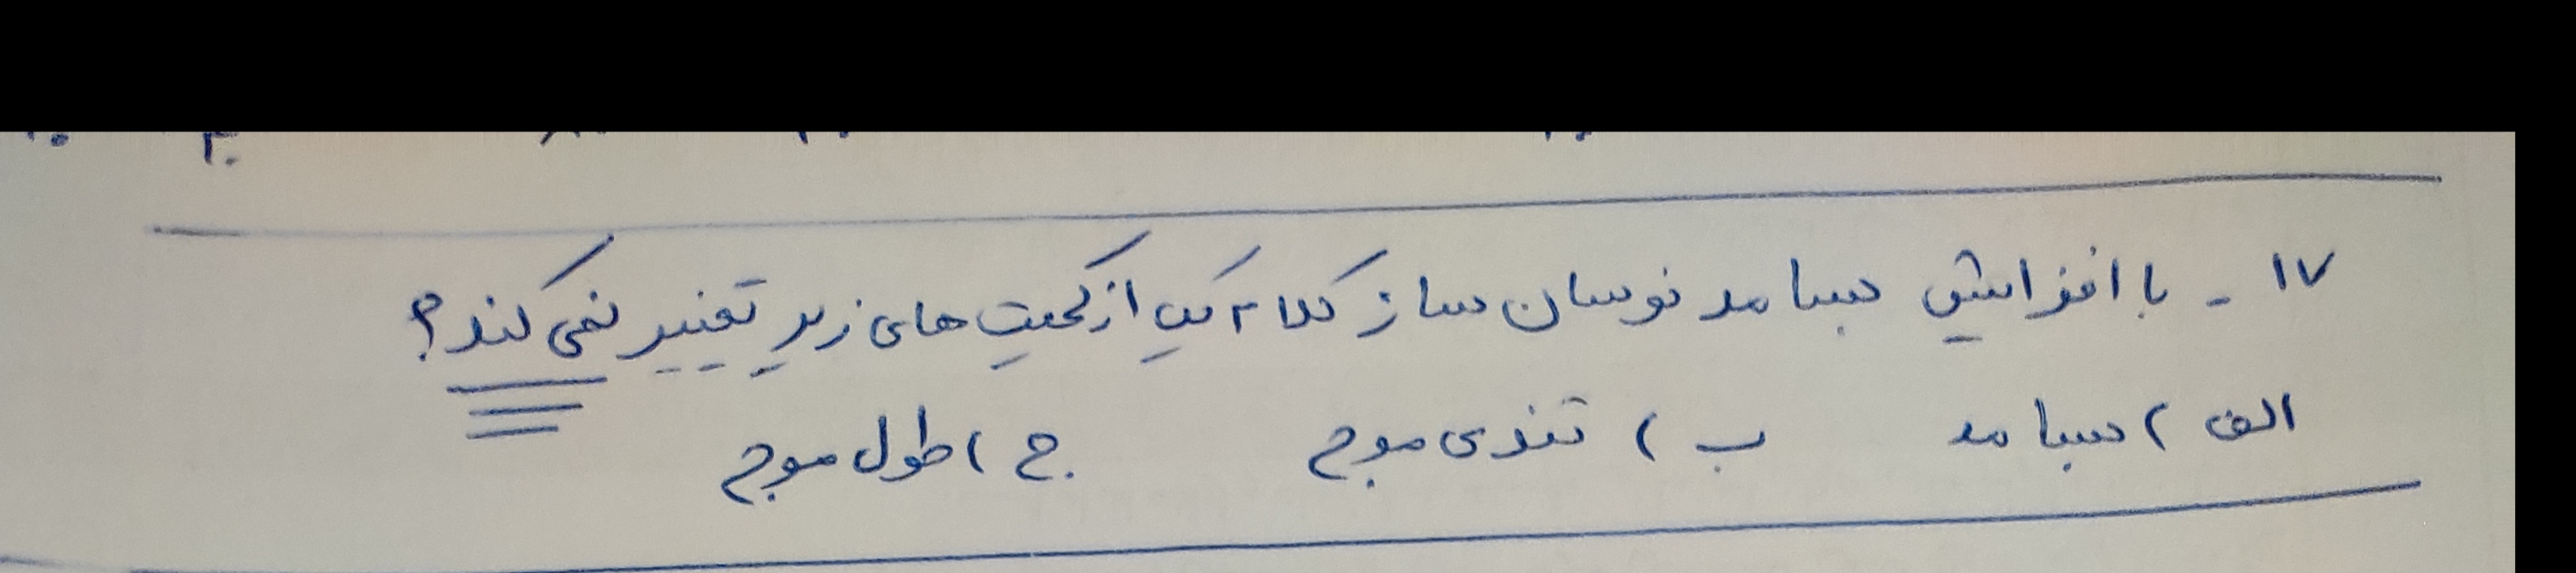 ۱۷ - با افزایش بسامد نوسان ساز کدام یک از کمیت های زیر تغییر نمی کند؟
الف) بسامد ب) تندی موج ج) طول موج